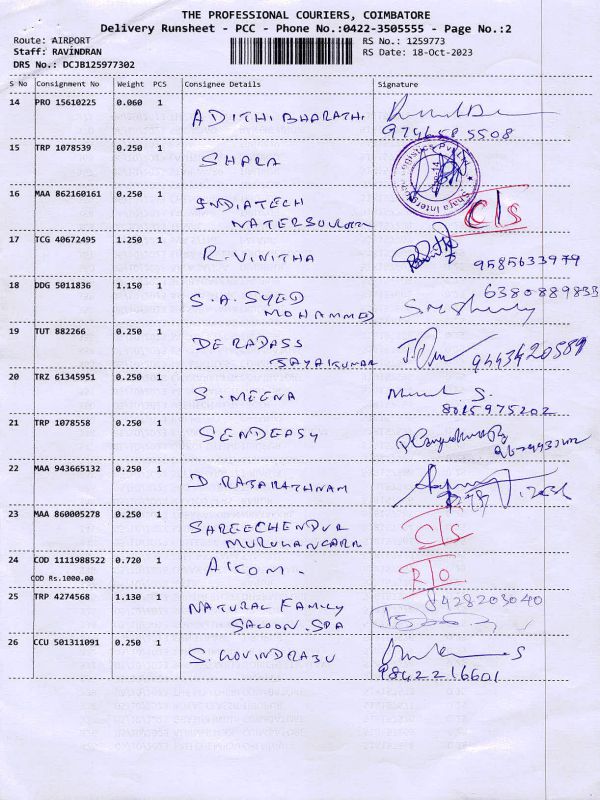 THE PROFESSIONAL COURIERS, COIMBATORE
Delivery Runsheet - PCC - Phone No.:0422-3505555 - Page No.:2
Route: AIRPORT
RS No.: 1259773
Staff: RAVINDRAN
RS Date: 18-Oct-2023
DRS No.: DCJB125977302
S No Consignment No Weight PCS Consignee Details Signature
14 PRO 15610225 0.060 1 ADITHI BHARATHI
15 TRP 1078539 0.250 1 SHARA
16 MAA 862160161 0.250 1 INDIATECH C/S
WATERSOURCE
17 TCG 40672495 1.250 1 R. VINITHA 9585633979
18 DDG 5011836 1.150 1 S.A. SYED 6380889833
MOHAMMED
19 TUT 882266 0.250 1 DERADASS 9443420589
JAYAKUMAR
20 TRZ 61345951 0.250 1 S. MEENA
8015975202
21 TRP 1078558 0.250 1 SENDEASY
22 MAA 943665132 0.250 1 D RAJARATHNAM
23 MAA 860005278 0.250 1 SAREECHENDUR C/S
24 COD 1111988522 0.720 1 AIKOM. R/O
COD Rs.1000.00
25 TRP 4274568 1.130 1 NATURAL FAMILY 8428203040
SALOON.SPA
26 CCU 501311091 0.250 1 S. GOVINDRAJU
9842216601